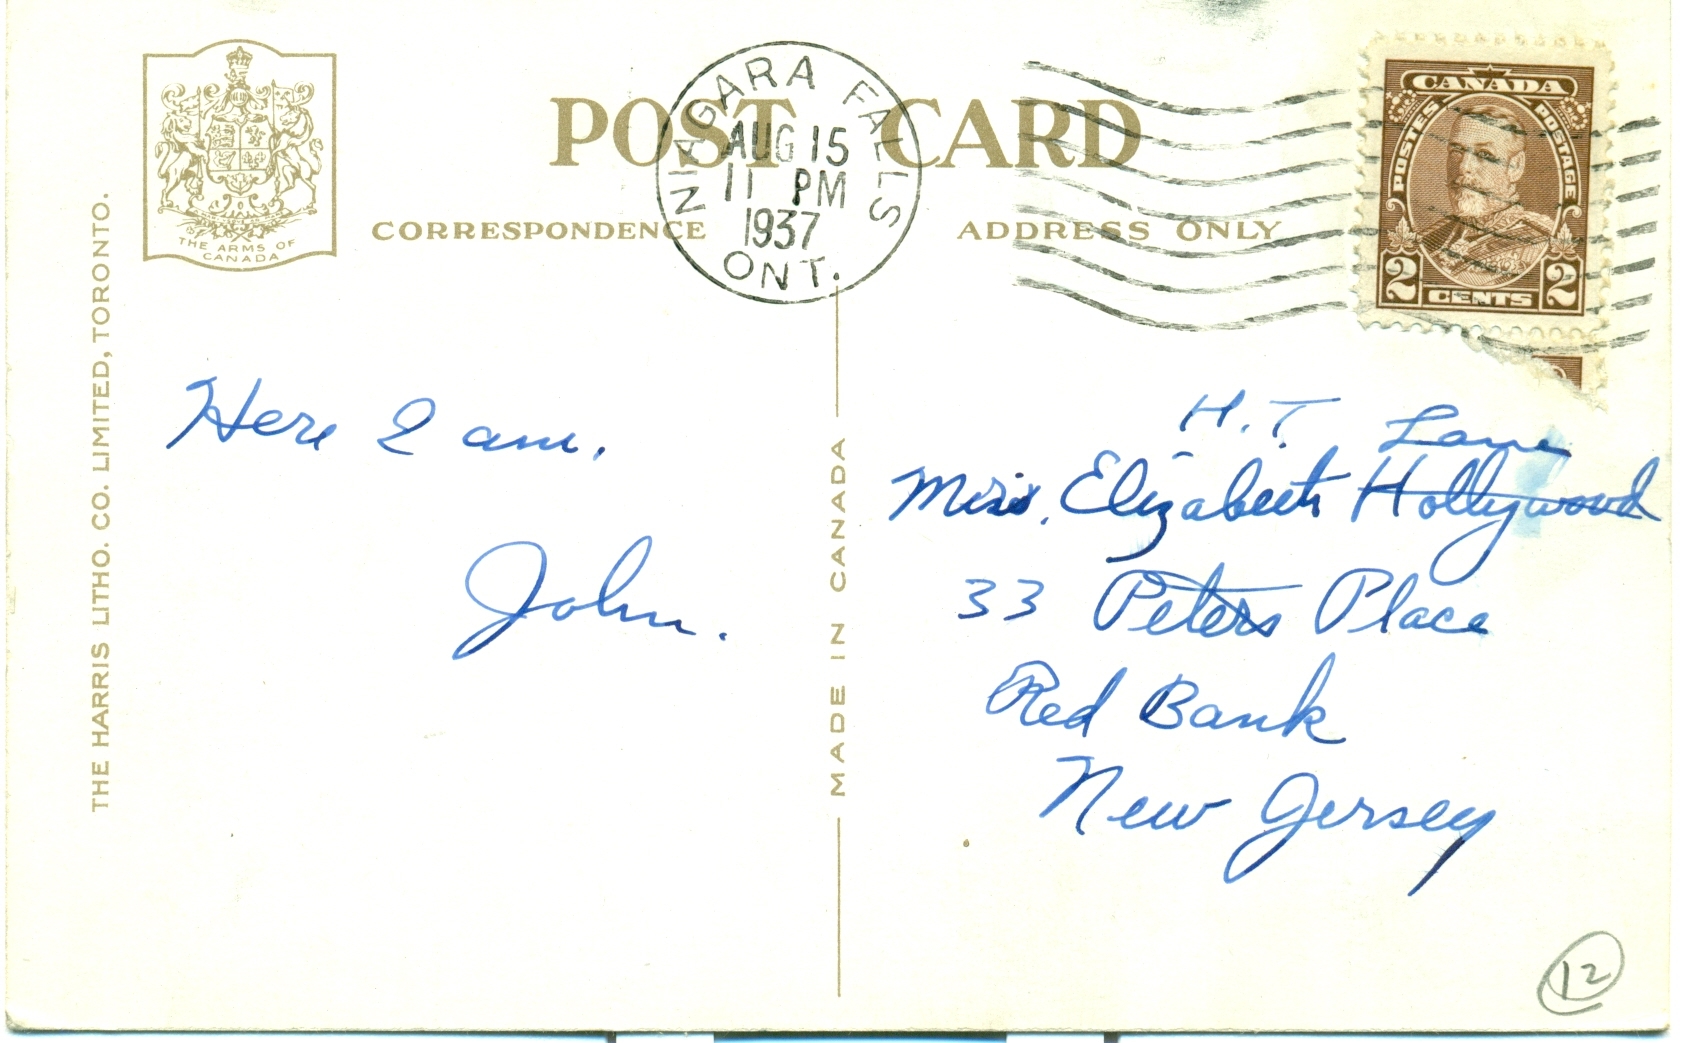 POST CARD
CORRESPONDENCE
ADDRESS ONLY
THE ARMS OF
CANADA
THE HARRIS LITHO. CO. LIMITED, TORONTO.
NIAGARA FALLS
AUG 15
11 PM
1937
ONT.
CANADA
POSTES
POSTAGE
2 CENTS 2
Here I am.
John.
MADE IN CANADA
H. T. Lane
Miss. Elizabeth Hollywood
33 Peters Place
Red Bank
New Jersey
12